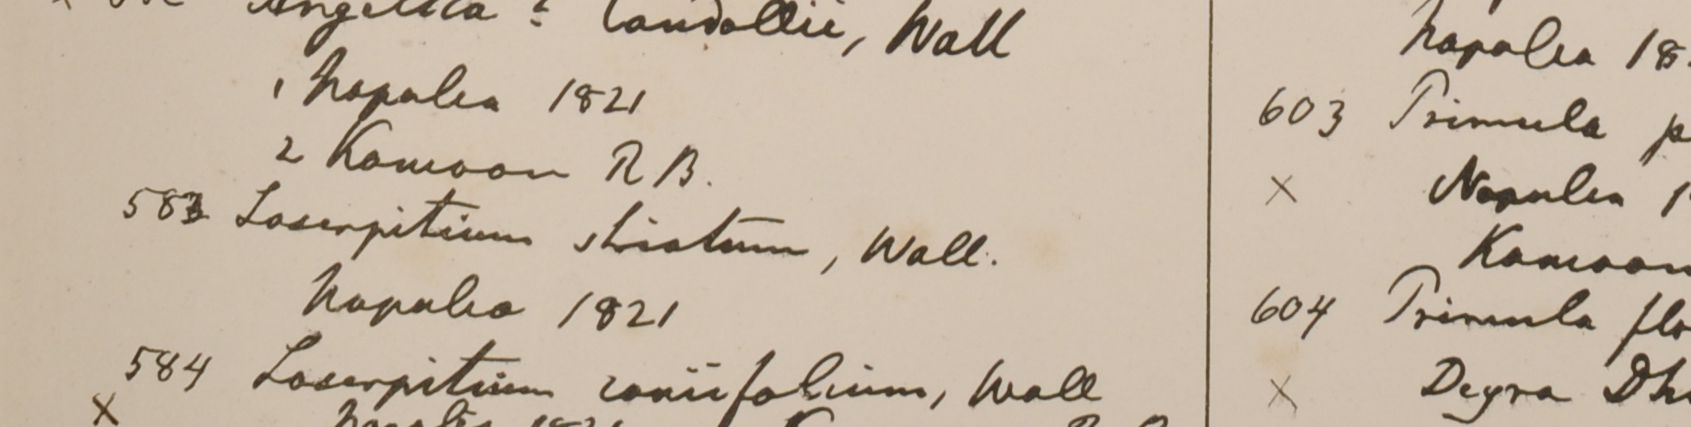 Angelica ? Candollii, Wall
1 Napalia 1821
2 Kamoon R B.
583 Laserpitium striatum, Wall.
Napalia 1821
584 Laserpitium coniifolium, Wall
X
Napalia 18
603 Primula
X Napalia
Kamaon
604 Primula
X Deyra